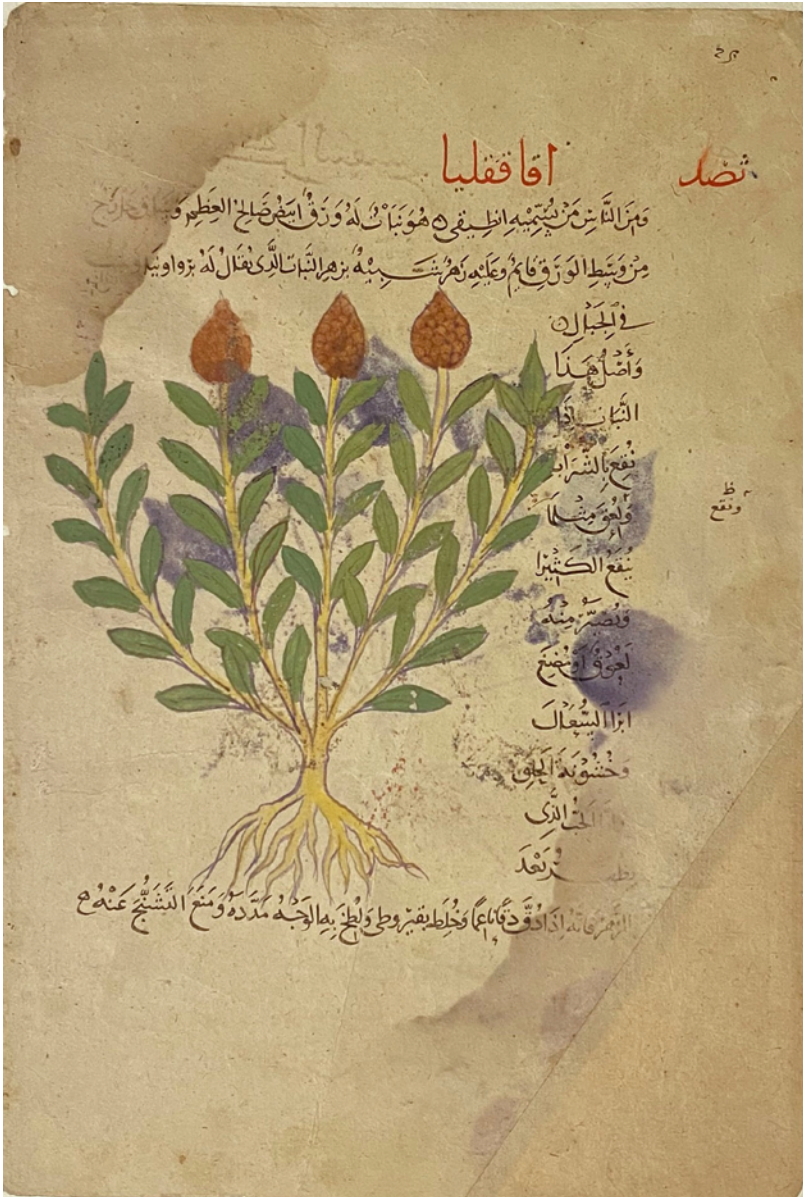 تصد
اقاققليا
ومن الناس من يسميه انطيقى ه هو نبات له ورق ابيض صالح العظم
من وسط الورق قائم وعليه زهر شبيه بزهر النبات الذى يقال له
فى الجبال ه
وأصل هذا
النبات اذا
نقع بالشراب
ولعق مثلما
ونقع ظ
ينقع الكثيرا
منه
لعوق او مضغ
ابرا السعال
وخشونة الحلق
الحب الذى
بعد
فانه اذا دق دقا ناعما وخلط بقيروطى ولطخ به الوجه مدده ومنع التشنج عنه